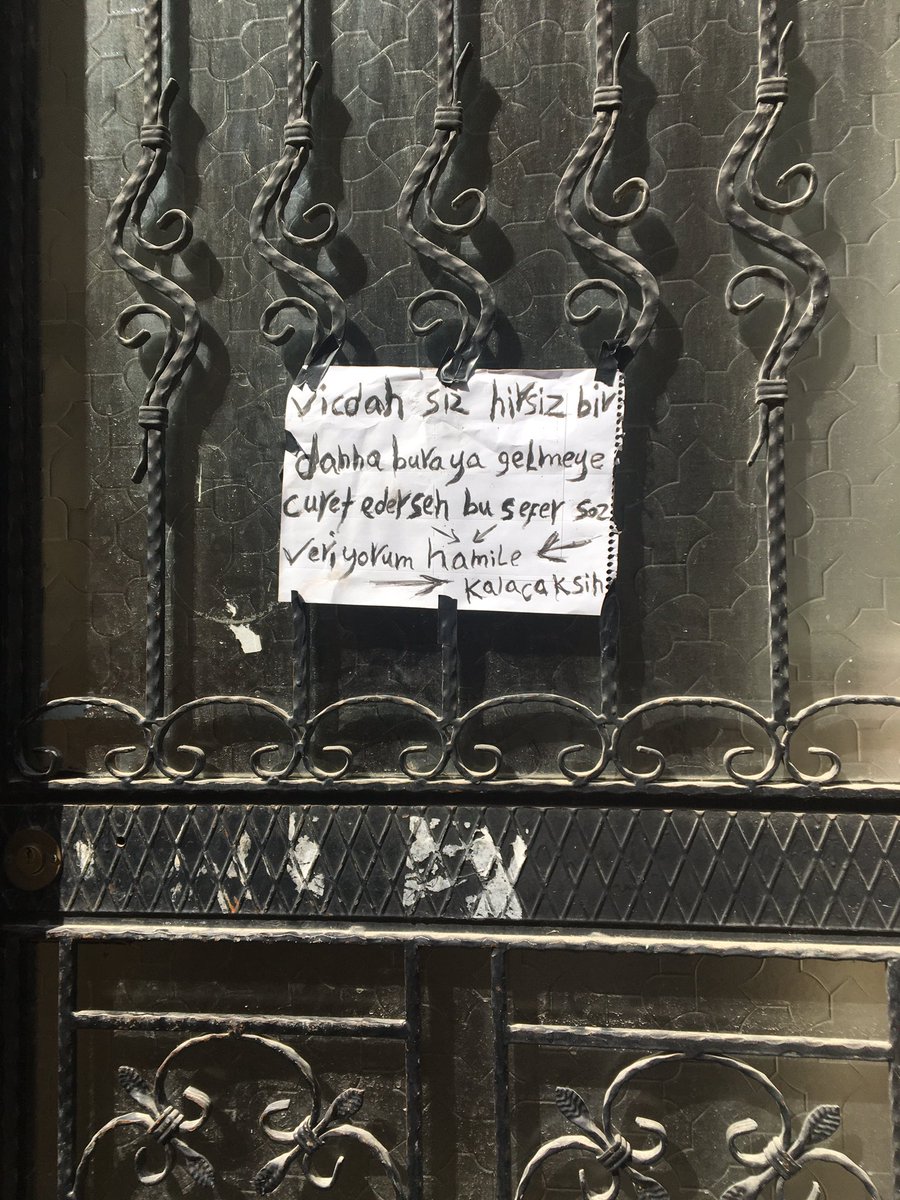 vicdah siz hirsiz bir
dahha buraya gelmeye
curet ederseh bu sefer soz
veriyorum hamile
kalaçaksih